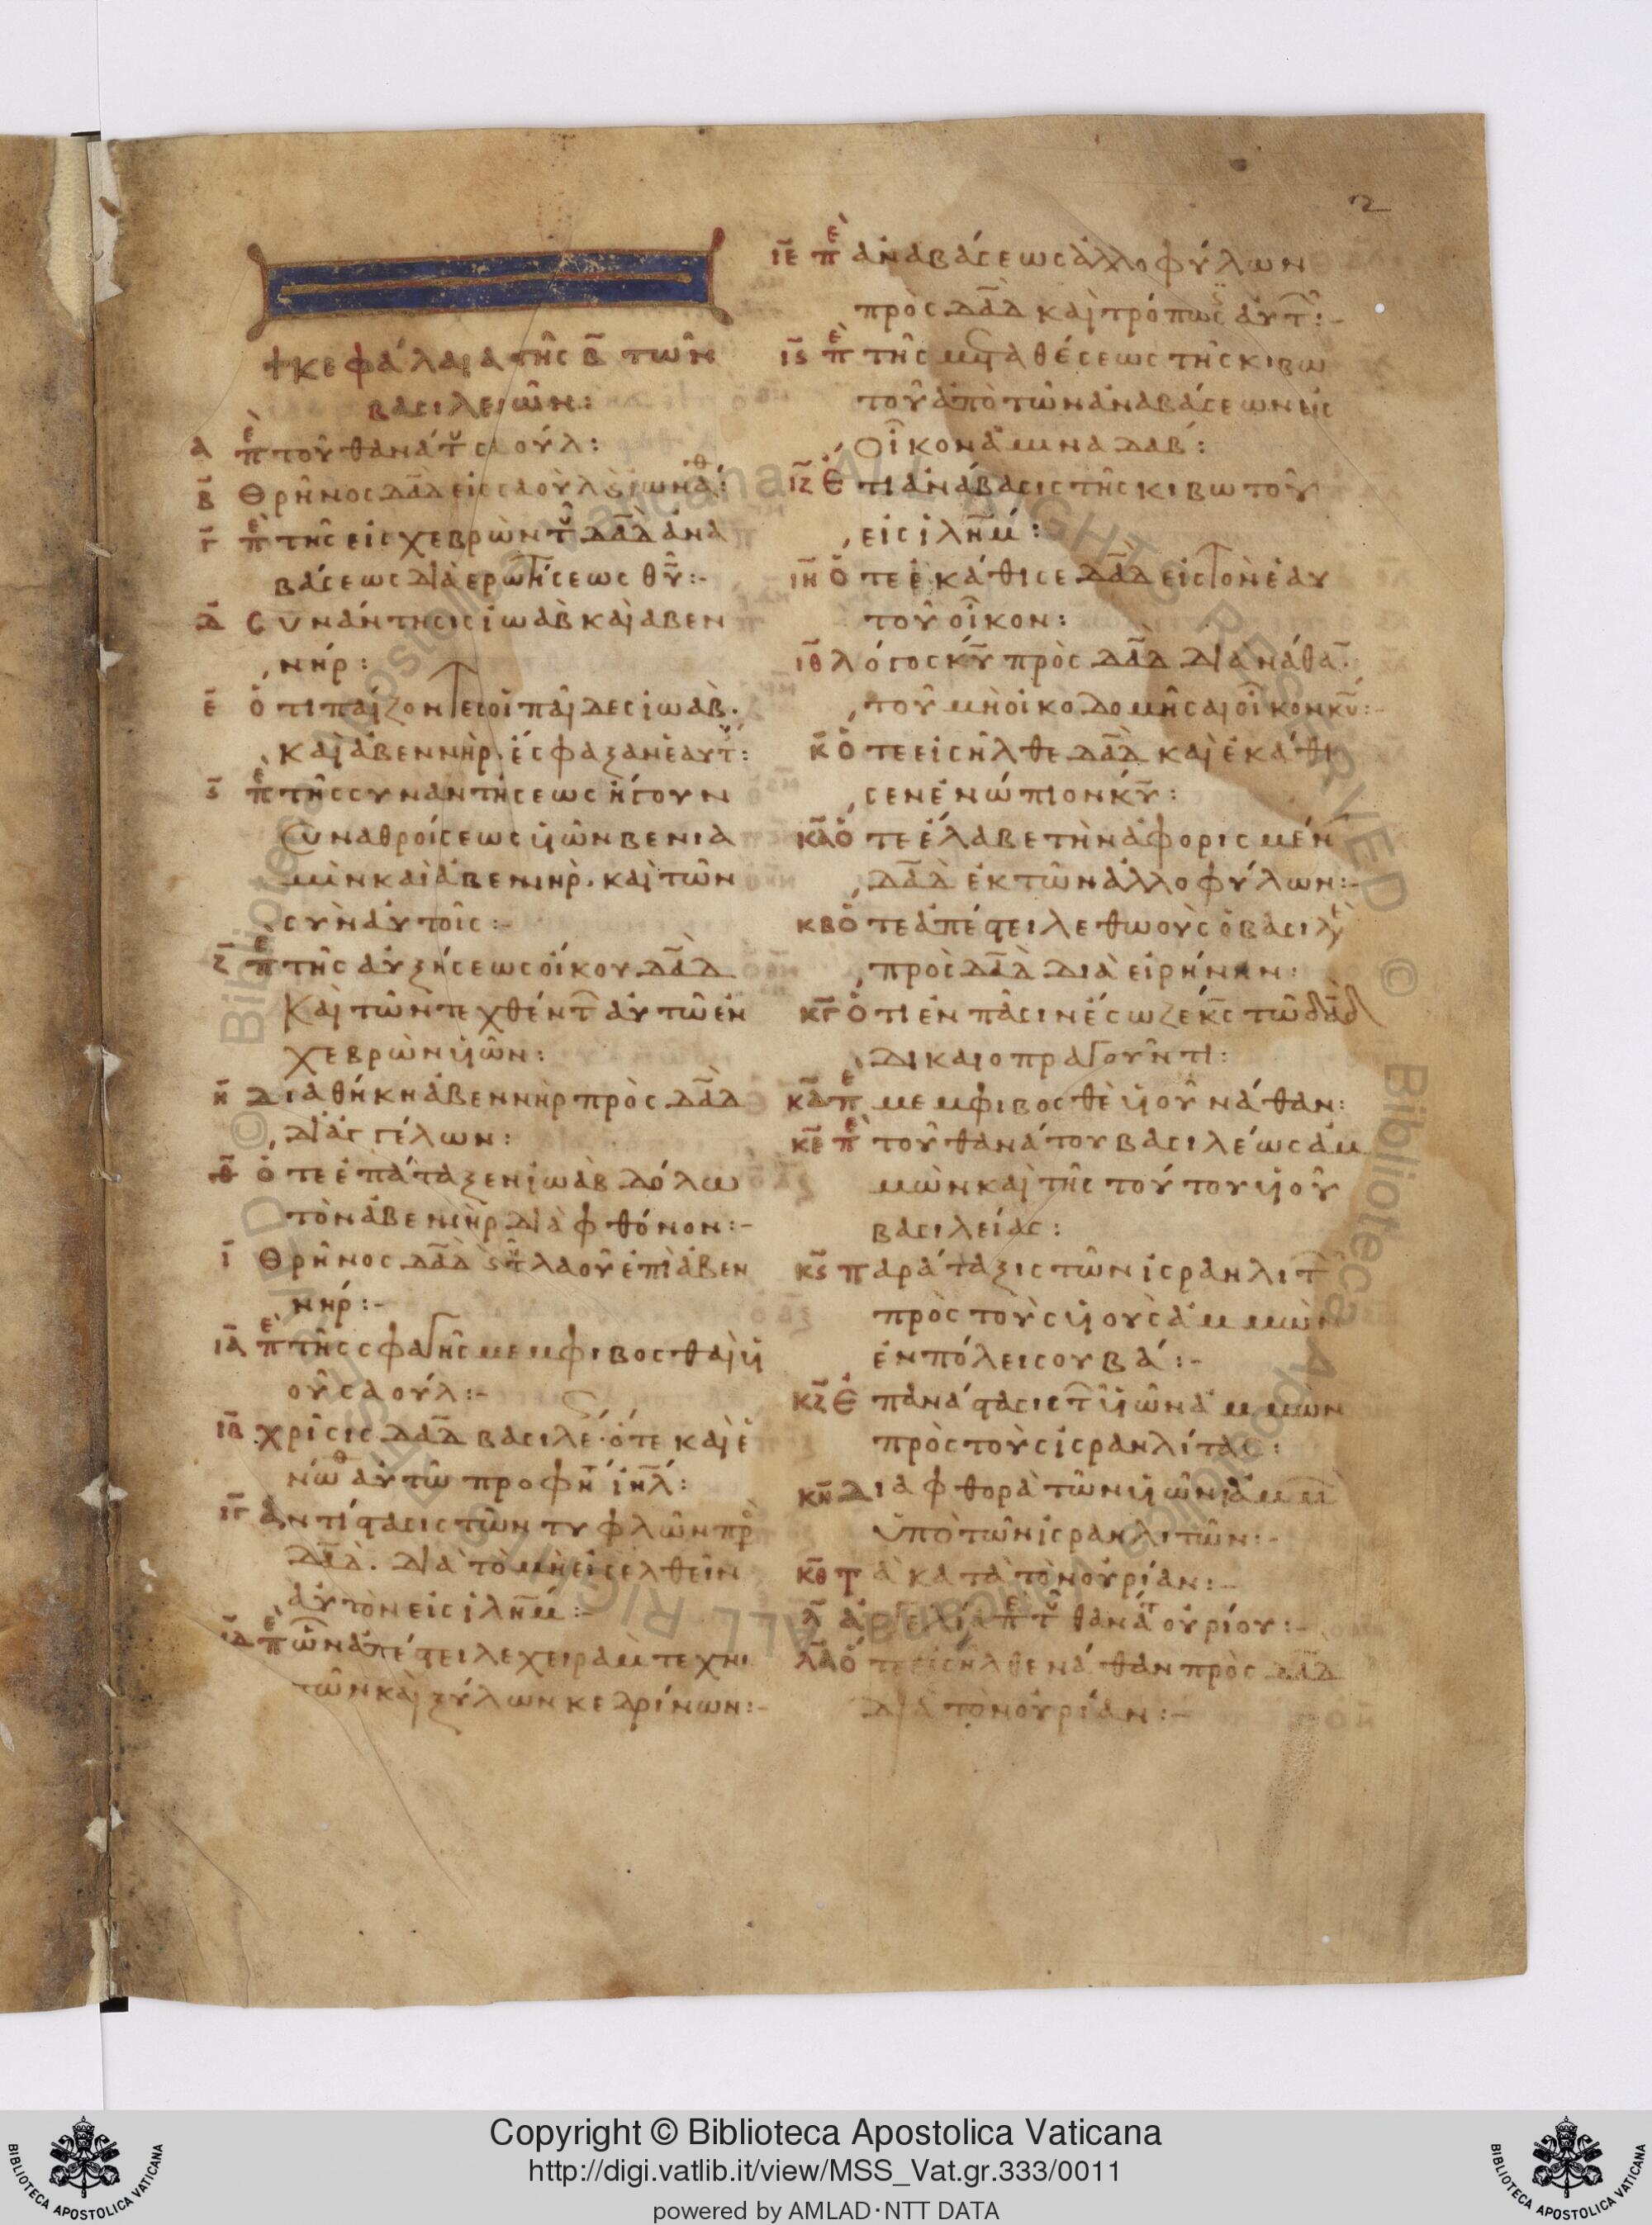 2
+κεφάλαια τῆς β̅ τῶν
βασιλειῶν:
α̅ πὲ τοῦ θανάτου σαούλ:
β̅ Θρῆνος δα̅δ εἰς σαοὺλ ϗ ἰωνάθ:
γ̅ πὲ τῆς εἰς χεβρὼν τοῦ δα̅δ ἀνα
βάσεως διὰ ἐρωτήσεως θυ̅:-
δ̅ Συνάντησις ἰωὰβ καὶ ἀβεν
νήρ:
ε̅ ὅτι παίζοντες οἱ παῖδες ἰωὰβ.
καὶ ἀβεννὴρ. ἔσφαξαν ἑαυτούς:
ϛ̅ πὲ τῆς συναντήσεως ἤγουν
Συναθροίσεως υἱῶν βενια
μὶν καὶ ἀβεννὴρ. καὶ τῶν
σὺν αὐτοῖς:-
ζ̅ πὲ τῆς αὐξήσεως οἴκου δα̅δ
Καὶ τῶν τεχθέντ αὐτῶ ἐν
χεβρὼν υἱῶν:
η̅ Διαθήκη ἀβεννὴρ πρὸς δα̅δ
δι ἀγγέλων:
θ̅ ὅτε ἐπάταξεν ἰωὰβ δόλω
τὸν ἀβεννὴρ διὰ φθόνον:-
ι̅ Θρῆνος δα̅δ ϗ τοῦ λαοῦ ἐπὶ ἀβεν
νήρ:-
ια̅ πὲ τῆς σφαγῆς μεμφιβοσθαὶ υἱ
οῦ σαούλ:-
ιβ̅ χρίσις δα̅δ βασιλέ· ὅτε καὶ ἐ
νώθ αὐτῶ προφη ιη̅λ:
ιγ̅ ἀντίστασις τῶν τυφλῶν πρ
δα̅δ. διὰ τὸ μὴ εἰσελθεῖν
αὐτὸν εἰς ιλη̅μ:-
ιδ̅ πὲ ὧν ἀπέστειλε χειρὰμ τεχνι
τῶν καὶ ξύλων κεδρίνων:-
ιε̅ πὲ ἀναβάσεως ἀλλοφύλων
πρὸς δα̅δ καὶ τρόπως αὐτ:-
ιϛ̅ πὲ τῆς μεταθέσεως τῆς κιβω
τοῦ ἀπὸ τῶν ἀναβάσεων εἰς
Οἶκον ἀμιναδαβ:
ιζ̅ Ἔτι ἀνάβασις τῆς κιβωτοῦ
εἰς ιλη̅μ:
ιη̅ Ὅτε ἐκάθισε δα̅δ εἰς τὸν ἑαυ
τοῦ οἶκον:
ιθ̅ λόγος κυ̅ πρὸς δα̅δ διὰ νάθα̅.
τοῦ μὴ οἰκοδομῆσαι οἶκον κυ̅:-
κ̅ Ὅτε εἰσῆλθε δα̅δ καὶ ἐκάθι
σεν ἐνώπιον κυ̅:
κα̅ Ὅτε ἔλαβε τὴν ἀφορισμέν
δα̅δ ἐκ τῶν ἀλλοφύλων:-
κβ Ὅτε ἀπέστειλε θωοὺς ὁ βασιλ
πρὸς δα̅δ διὰ εἰρήνην:
κγ̅ Ὅτι ἐν πᾶσιν ἔσωζε κς̅ τῶ δα̅δ
δικαιοπραγοῦντι:
κδ̅ πὲ μεμφιβοσθὲ υἱοῦ νάθαν:
κε̅ πὲ τοῦ θανάτου βασιλέως ἀμ
μὼν καὶ τῆς τούτου υἱοῦ
βασιλείας:
κϛ̅ παράταξις τῶν ἰσραηλιτ
πρὸς τοὺς υἱοὺς ἀμμὼν
ἐν πόλει σουβά:-
κζ̅ Ἐπανάστασις τ υἱῶν ἀμμὼν
πρὸς τοὺς ἰσραηλίτας:
κη̅ Διαφθορὰ τῶν υἱῶν ἀμμ
ὑπὸ τῶν ἰσραηλιτῶν:-
κθ̅ τὰ κατὰ τὸν οὐρίαν:-
λ̅ ἀγγελία πὲ τοῦ θανάτ οὐρίου:-
λα̅ Ὅτε εἰσῆλθε νάθαν πρὸς δα̅δ
διὰ τὸν οὐρίαν:-
Copyright © Biblioteca Apostolica Vaticana
http://digi.vatlib.it/view/MSS_Vat.gr.333/0011
powered by AMLAD·NTT DATA
BIBLIOTECA APOSTOLICA VATICANA
BIBLIOTECA APOSTOLICA VATICANA